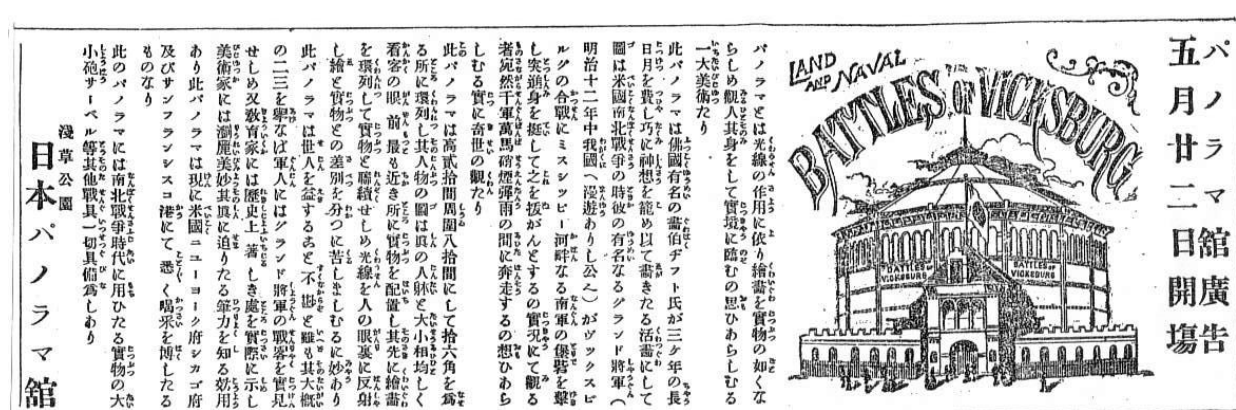 パノラマ舘廣告
五月廿二日開塲
LAND AND NAVAL
BATTLES OF VICKSBURG
BATTLES OF VICKSBURG
BATTLES OF VICKSBURG
パノラマとは光線の作用に依り繪畵を實物の如くな
らしめ觀人其身をして實境に臨むの思ひあらしむる
一大美術たり
此パノラマは佛國有名の畵伯ヂフト氏が三ケ年の長
日月を費し巧に神想を籠め以て畵きたる活畵にして
圖は米國南北戰爭の時彼の有名なるグランド將軍(
明治十二年中我國へ漫遊ありし公)がヴックスビ
ルグの合戰にミスシッピー河畔なる南軍の堡砦を擊
し突進身を挺して之を拔がんとするの實况にて觀る
者宛然千軍萬馬硝煙彈雨の間に奔走するの想ひあら
しむる實に奇世の觀たり
此パノラマは高貳拾間周圍八拾間にして拾六角を爲
る所に環列し其人物の圖は眞の人躰と大小相均しく
看客の眼前最も近き所に實物を配置し其先に繪畵
を環列して實物と聯續せしめ光線を人の眼裏に反射
し繪と實物との差別を分つに苦しましむるに妙あり
此パノラマは世人を益するあと不尠と雖も其大概
の二三を擧なげ軍人にはグランド將軍の戰畧を實見
せしめ又敎育家には歷史上著しき處を實際に示し
美術家には瀟麗美妙其眞に迫りたる筆力を知る効用
あり此パノラマは現に米國ニューヨーク府シカゴ府
及びサンフランシスコ港にて悉く喝采を博したる
ものなり
此のパノラマには南北戰爭時代に用ひたる實物の大
小砲サーベル等其他戰具一切具備爲しあり
淺草公園
日本パノラマ舘